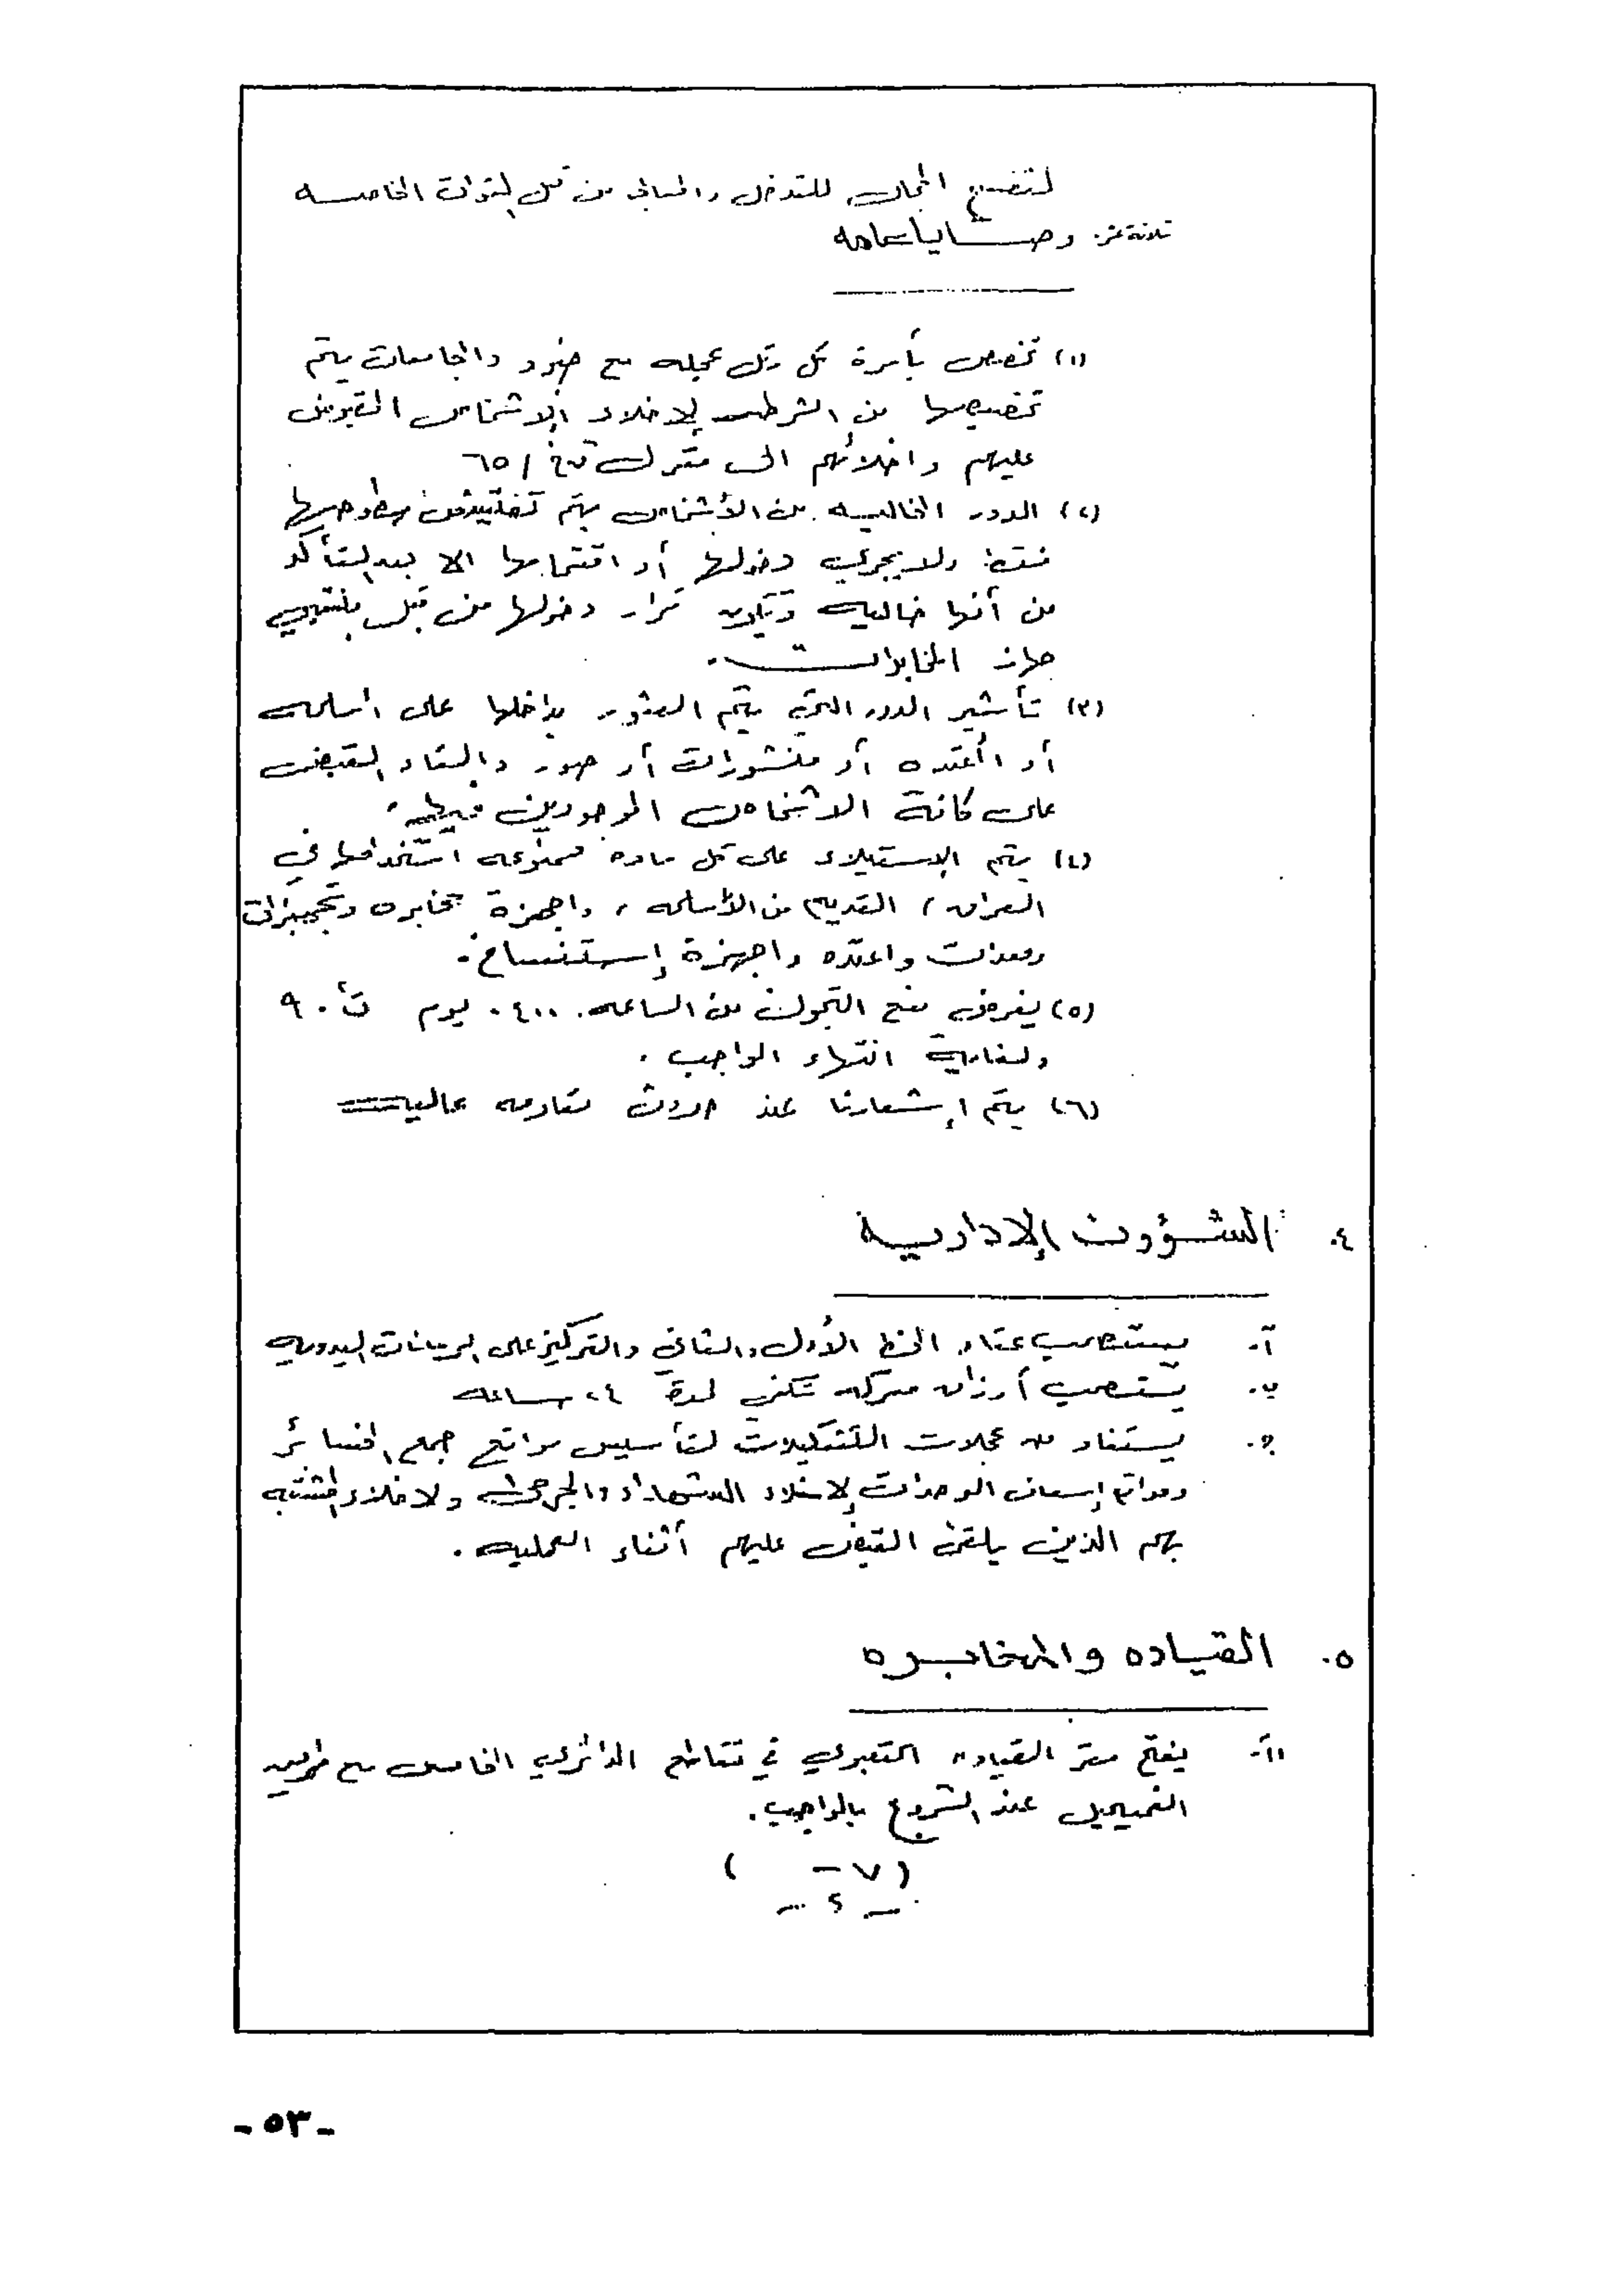 لتفسح المجال للتدخل والمباني من قبل القوات الخاصه
ثلاثة عشر. وصايا عامه
(١) تخصص بأمرة كل رتل عجله مع جنود والجامعات يتم
تخصيصها من الشرطه لإخلاء الأشخاص المقبوض
عليهم واخلائهم الى مقرك ق خ / ٦٥
(٢) الدور الخاليه من الأشخاص يتم تفتيش سطوحها
فقط ولا يجري دخولها أو اقتحامها الا بعد التأكد
من أنها خاليه ويكون قرار دخولها من قبل منتسبي
جهاز المخابرات.
(٣) تأشير الدور التي يتم العثور بداخلها على اسلحه
أو أعتده أو منشورات أو صور والقاء القبض
على كافة الاشخاص الموجودين فيها.
(٤) يتم الإستيلاء على كل ماده ممنوعه استخدامها في
العراق، القديم من الأسلحه، واجهزة مخابره وتجهيزات
ومعدات واعتده واجهزة إستنساخ.
(٥) يفرض منع التجول من الساعه ٠٤٠٠ يوم ت أ ٩٠
ولغاية انتهاء الواجب.
(٦) يتم إشعارنا عند حدوث مقاومه عاليه
٤. الشؤون الإداريه
آ. يستصحب عتاد الخط الأول والثاني والتركيز على الرمانات اليدويه
ب. يستصحب أرزاق معركه تكفي لمدة ٢٤ ساعه
ج. يستفاد من عجلات التشكيلات لتأسيس مواقع جمع الخسائر
ومواقع إسعاف الوحدات لإخلاء الشهداء والجرحى ولاخلاء المشتبه
بهم الذين يلقى القبض عليهم أثناء العمليه.
٥. القياده والمخابره
آ. يفتح مقر القياده التعبوي في تقاطع الدائري الخامس مع طريق
الفحيحيل عند الشروع بالواجب.
(٧ - )
- ٥٣ -